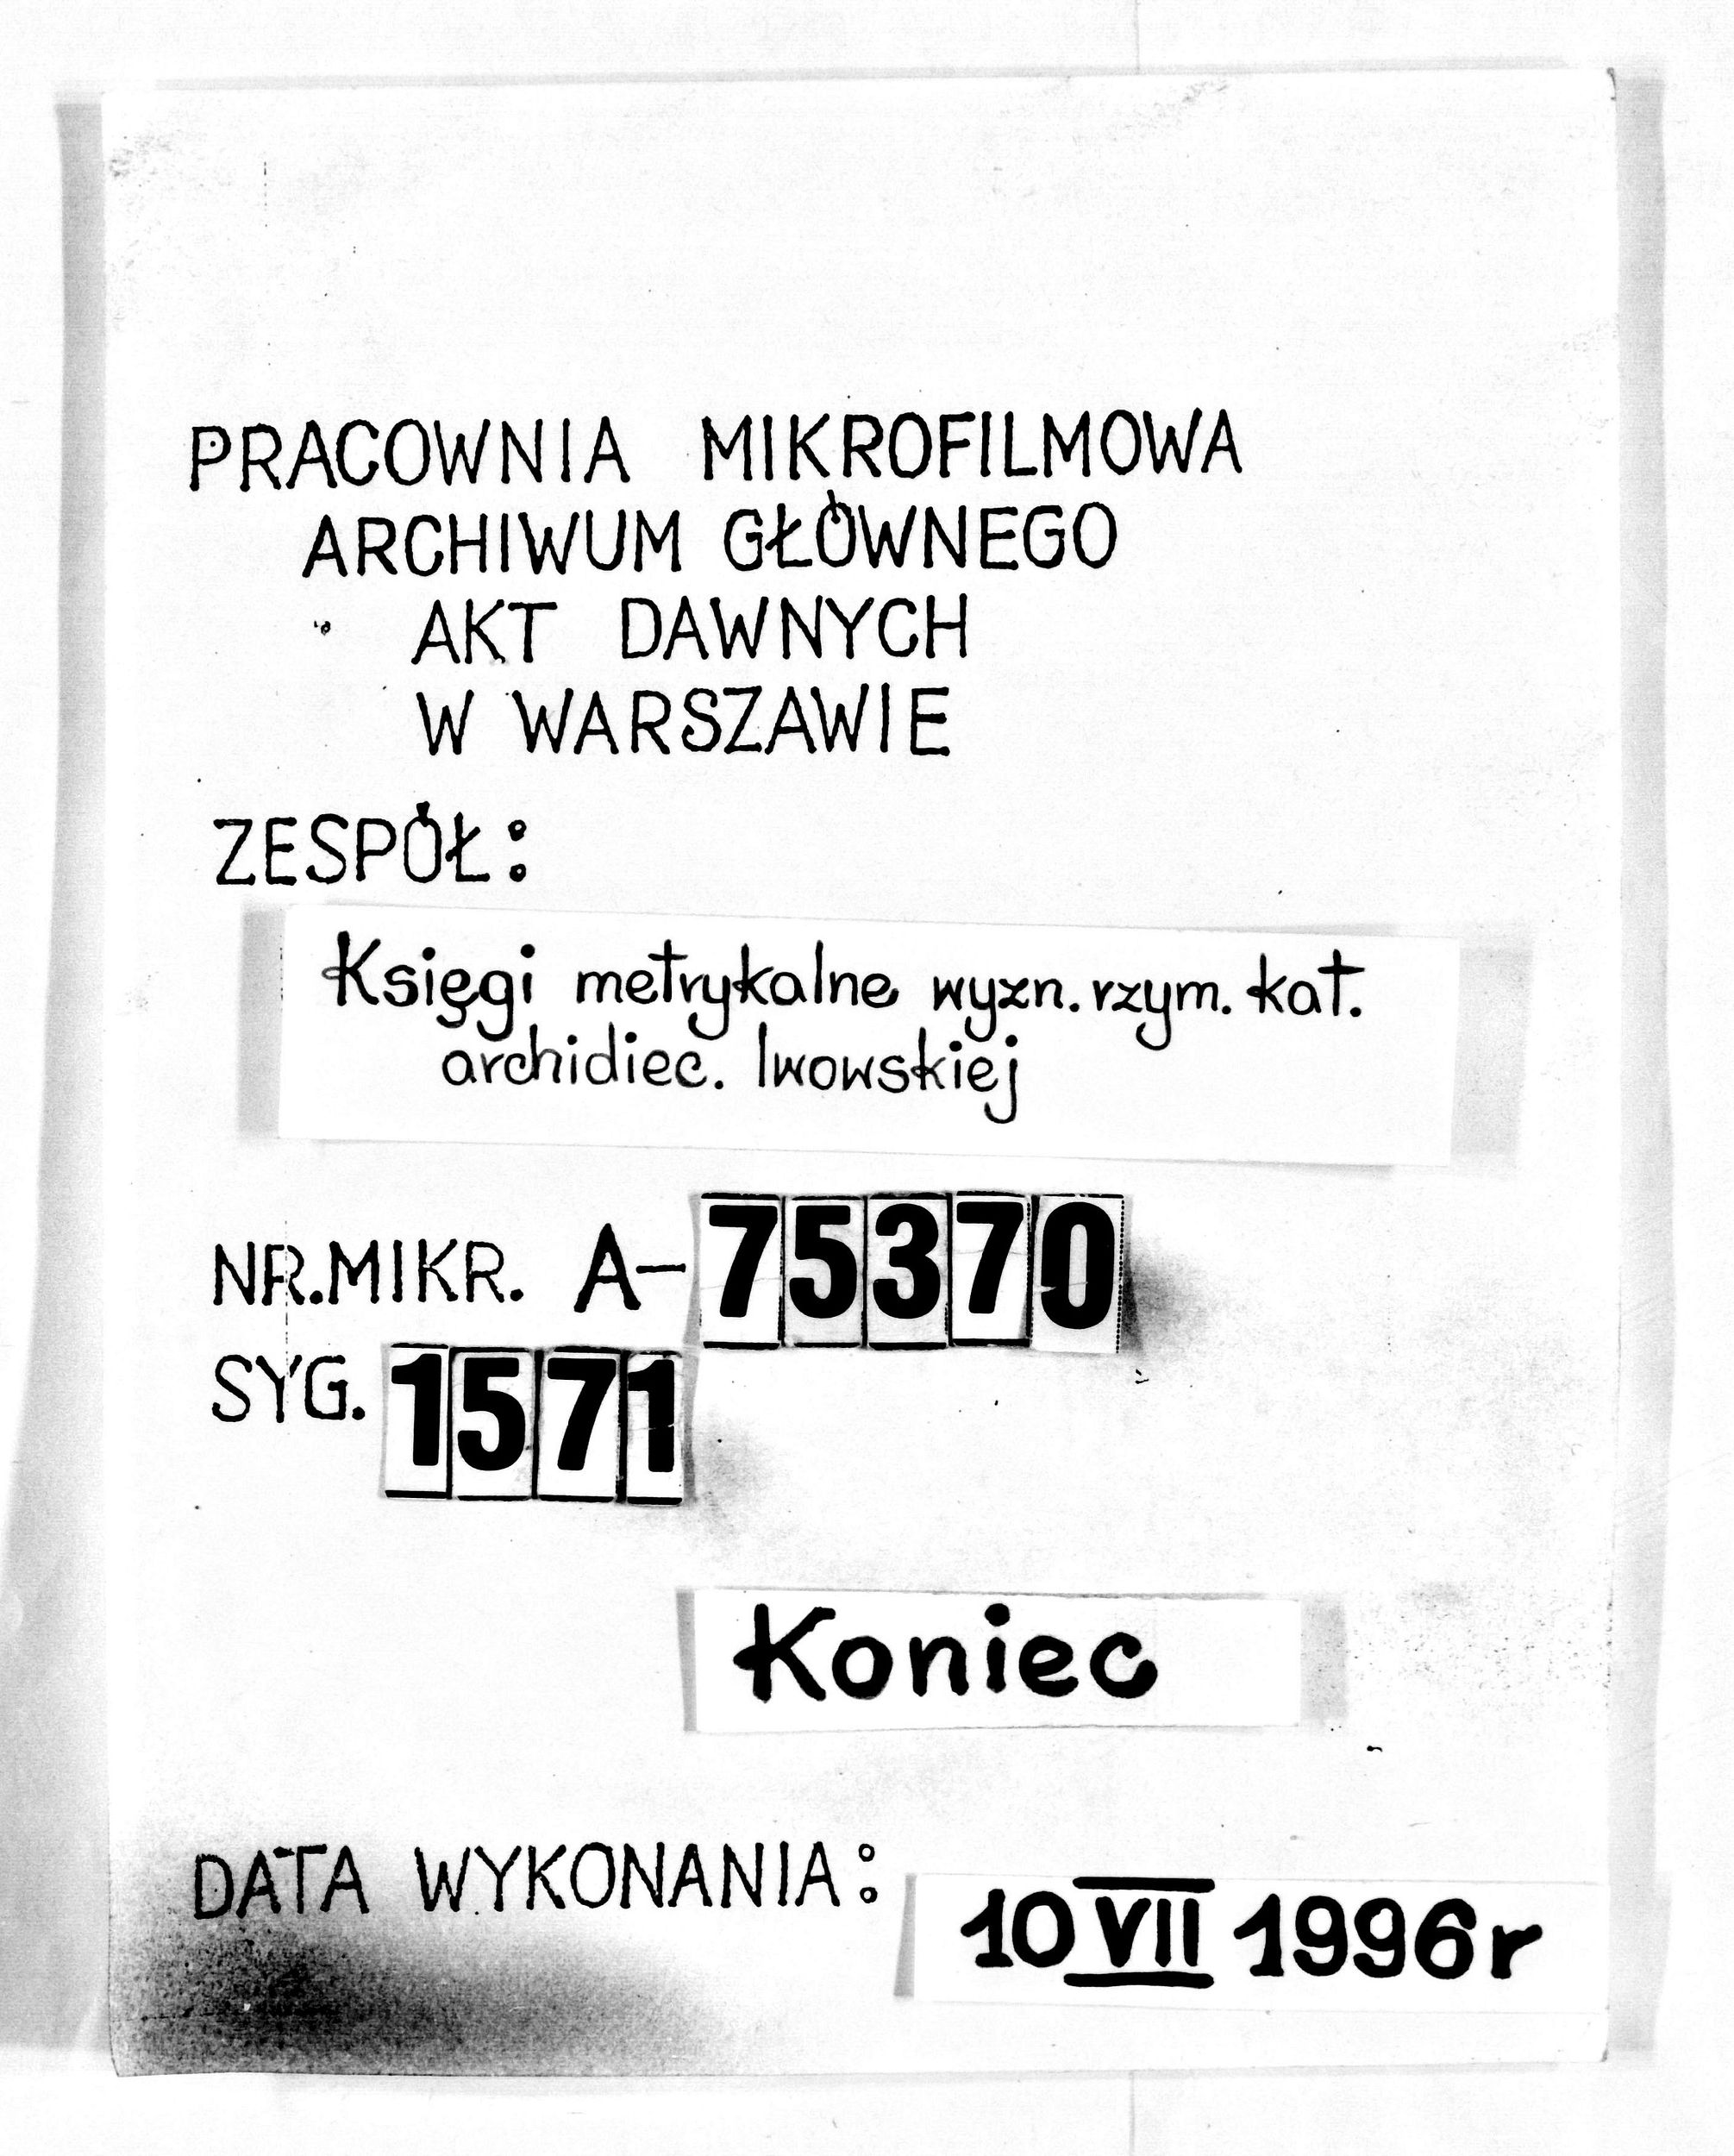 PRACOWNIA MIKROFILMOWA
ARCHIWUM GŁÓWNEGO
AKT DAWNYCH
W WARSZAWIE
ZESPÓŁ:
Księgi metrykalne wyzn. rzym. kat.
archidiec. lwowskiej
NR.MIKR. A-75370
SYG. 1571
Koniec
DATA WYKONANIA: 10 VII 1996 r